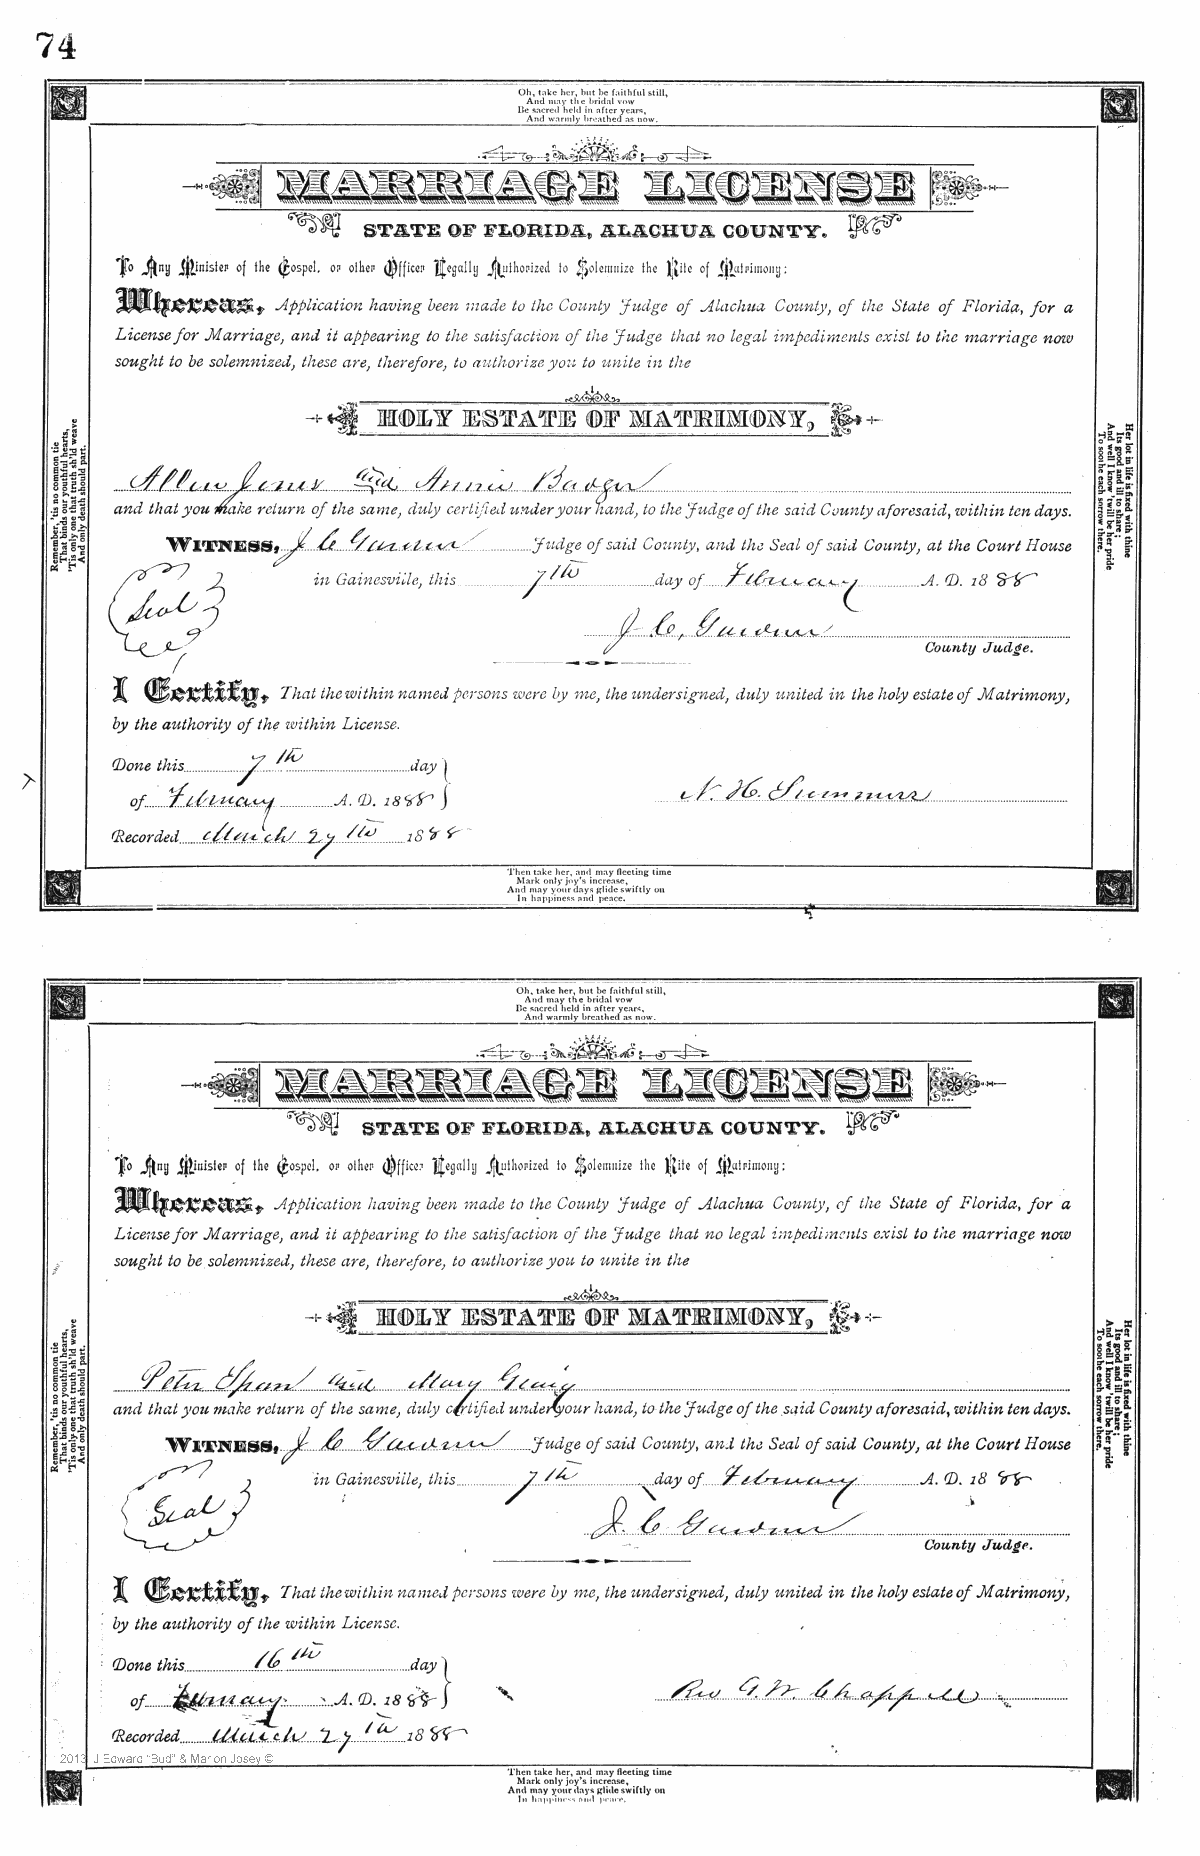 74
Oh, take her, but be faithful still,
And may the bridal vow
Be sacred held in after years,
And warmly breathed as now.
MARRIAGE LICENSE
STATE OF FLORIDA, ALACHUA COUNTY.
To Any Minister of the Gospel, or other Officer Legally Authorized to Solemnize the Rite of Matrimony:
Whereas, Application having been made to the County Judge of Alachua County, of the State of Florida, for a
License for Marriage, and it appearing to the satisfaction of the Judge that no legal impediments exist to the marriage now
sought to be solemnized, these are, therefore, to authorize you to unite in the
HOLY ESTATE OF MATRIMONY,
Allen Jones and Annie Badger
and that you make return of the same, duly certified under your hand, to the Judge of the said County aforesaid, within ten days.
WITNESS, J C Gardner Judge of said County, and the Seal of said County, at the Court House
in Gainesville, this 7th day of February A. D. 1888
Seal
J. C. Gardner
County Judge.
I Certify, That the within named persons were by me, the undersigned, duly united in the holy estate of Matrimony,
by the authority of the within License.
Done this 7th day
of February A. D. 1888
N. H. Summers
Recorded March 27th 1888
Remember, 'tis no common tie
That binds our youthful hearts,
'Tis only one that truth sh'ld weave
And only death should part.
Her lot in life is fixed with thine
Its good and ill to share;
And well I know 'twill be her pride
To soothe each sorrow there.
Then take her, and may fleeting time
Mark only joy's increase,
And may your days glide swiftly on
In happiness and peace.
Oh, take her, but be faithful still,
And may the bridal vow
Be sacred held in after years,
And warmly breathed as now.
MARRIAGE LICENSE
STATE OF FLORIDA, ALACHUA COUNTY.
To Any Minister of the Gospel, or other Officer Legally Authorized to Solemnize the Rite of Matrimony:
Whereas, Application having been made to the County Judge of Alachua County, of the State of Florida, for a
License for Marriage, and it appearing to the satisfaction of the Judge that no legal impediments exist to the marriage now
sought to be solemnized, these are, therefore, to authorize you to unite in the
HOLY ESTATE OF MATRIMONY,
Peter Span and Mary Geiry
and that you make return of the same, duly certified under your hand, to the Judge of the said County aforesaid, within ten days.
WITNESS, J C Gardner Judge of said County, and the Seal of said County, at the Court House
in Gainesville, this 7th day of February A. D. 1888
Seal
J. C Gardner
County Judge.
I Certify, That the within named persons were by me, the undersigned, duly united in the holy estate of Matrimony,
by the authority of the within License.
Done this 16th day
of February A. D. 1888
Rev G. W. Chappell
Recorded March 27th 1888
2013 J Edward "Bud" & Marion Josey ©
Remember, 'tis no common tie
That binds our youthful hearts,
'Tis only one that truth sh'ld weave
And only death should part.
Her lot in life is fixed with thine
Its good and ill to share;
And well I know 'twill be her pride
To soothe each sorrow there.
Then take her, and may fleeting time
Mark only joy's increase,
And may your days glide swiftly on
In happiness and peace.